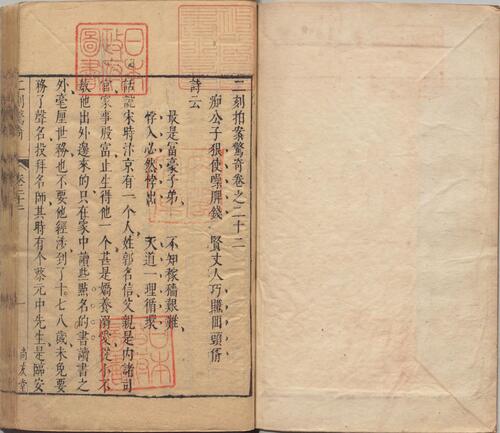 二刻拍案驚奇卷之二十二
痴公子狠使噪脾錢　賢丈人巧賺囬頭婿
詩云
最是富豪子弟　不知稼穡艱難
悖入必然悖出　天道一理循環
話說宋時汴京有一個人姓郭名信父親是內諸司
官家事殷富止生得他一個甚是嬌養溺愛從小不
教他出外邊來的只在家中讀些點名的書讀書之
外毫厘世務也不要他經涉到了十七八歲未免要
務了聲名投拜名師其時有個蔡元中先生是臨安
二刻驚奇
卷二十二
一
尚友堂
日本政府圖書